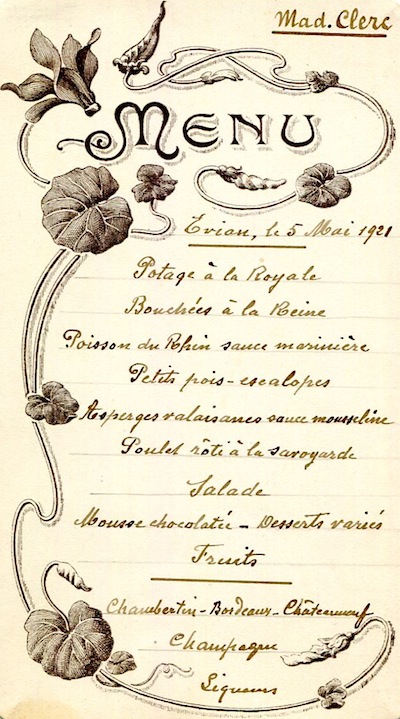 Mad. Clerc
MENU
Evian, le 5 Mai 1921
Potage à la Royale
Bouchées à la Reine
Poisson du Rhin sauce marinière
Petits pois - escalopes
Asperges valaisanes sauce mousseline
Poulet rôti à la savoyarde
Salade
Mousse chocolatée - Desserts variés
Fruits
Chambertin - Bordeaux - Châteauneuf
Champagne
Liqueurs